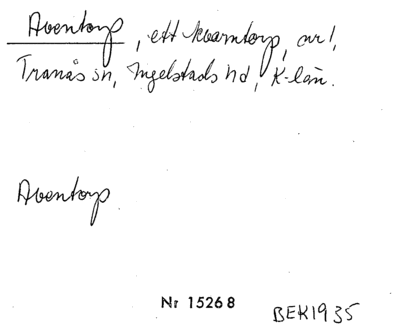 Aventorp, ett kvarntorp, avl,
Tranås sn, Ingelstads hd, K-län.
Aventorp
Nr 15268
BEK1935